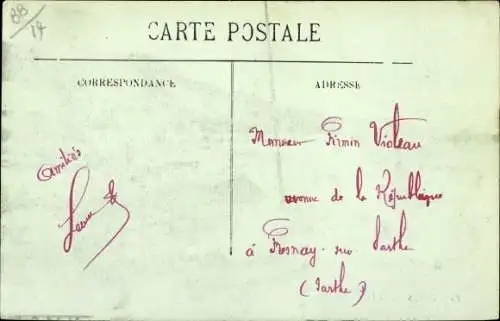 88
14
CARTE POSTALE
CORRESPONDANCE
ADRESSE
Amitiés
Monsieur Firmin Violeau
avenue de la République
à Fresnay-sur Sarthe
(Sarthe)